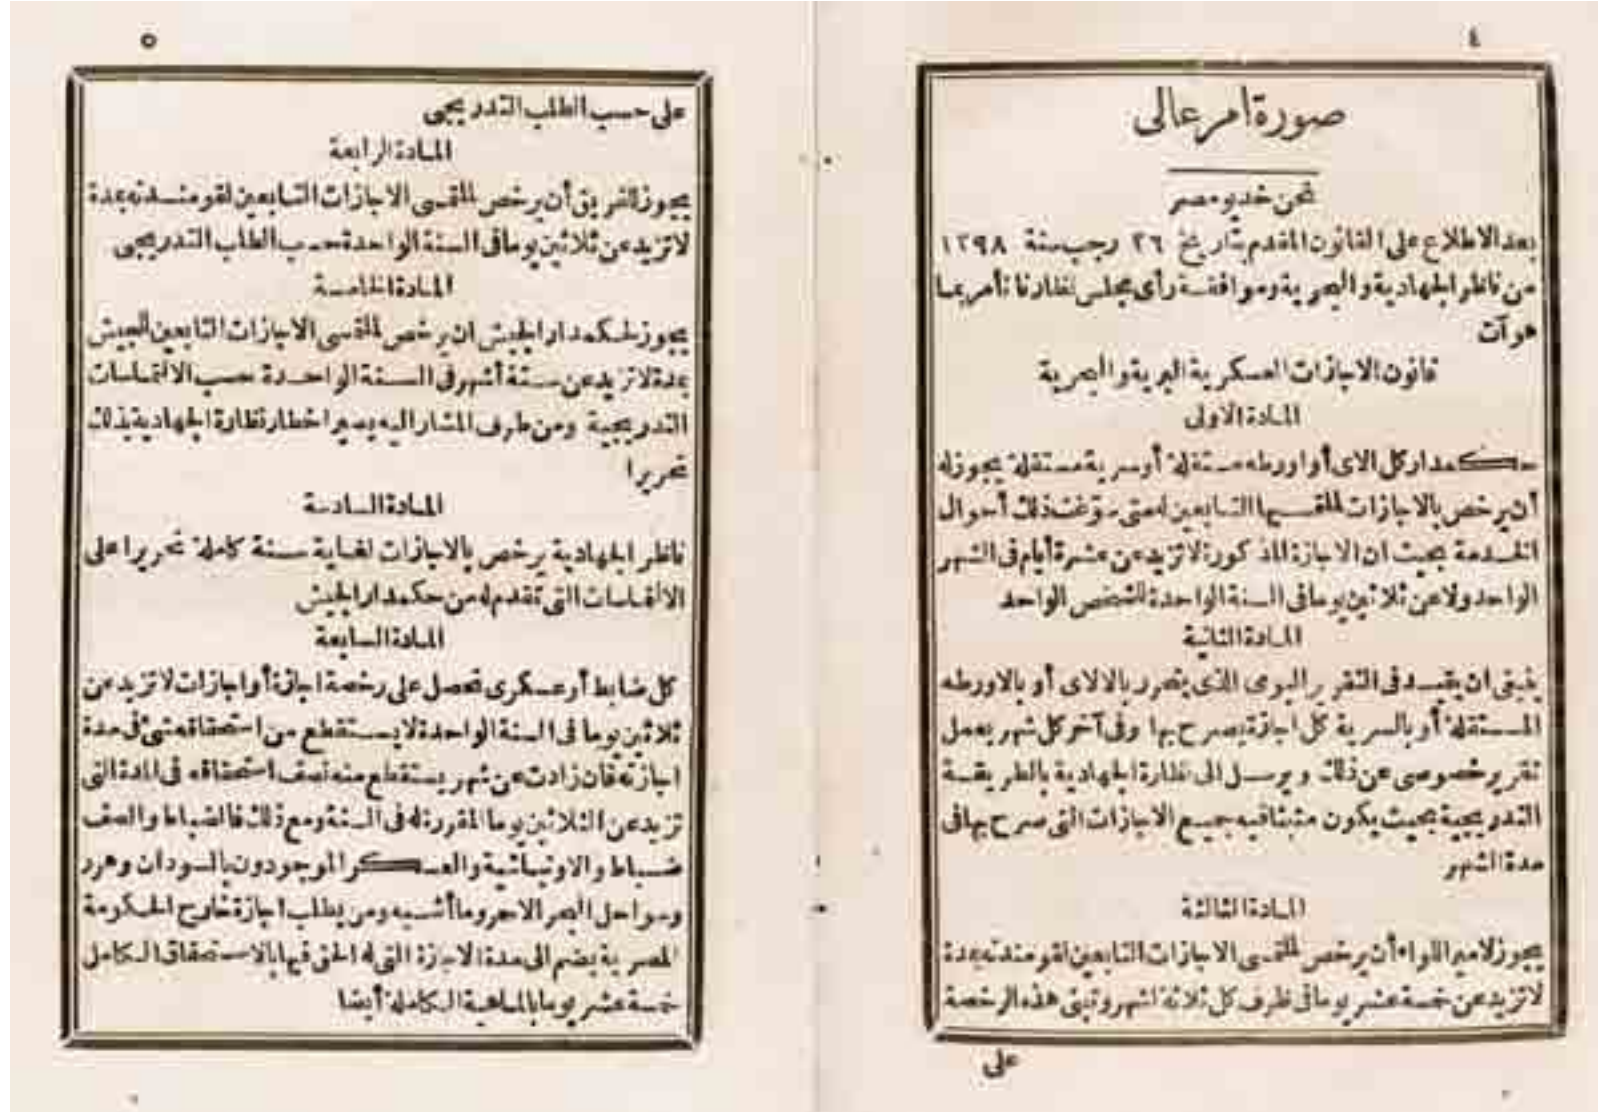 ٤
صورة أمر عالى
نحن خديو مصر
بعد الاطلاع على القانون المقدم بتاريخ ٢٦ رجب سنة ١٢٩٨
من ناظر الجهادية والبحرية وموافقة رأى مجلس نظارنا نأمر بما
هو آت
قانون الاجازات العسكرية البرية والبحرية
المادة الاولى
حكمدار كل الاى أو اورطه مستقلة أو سرية مستقلة يجوز له
أن يرخص بالاجازات للملتمسيها التابعين له متى سوّغت ذلك أحوال
الخدمة بحيث ان الاجازة المذكورة لا تزيد عن عشرة أيام فى الشهر
الواحد ولا عن ثلاثين يوما فى السنة الواحدة للشخص الواحد
المادة الثانية
ينبغى ان يقيد فى التقرير اليومى الذى يتحرر بالالاى أو بالاورطه
المستقلة أو بالسرية كل اجازة يصرح بها وفى آخر كل شهر يعمل
تقرير خصوصى عن ذلك ويرسل الى نظارة الجهادية بالطريقة
التدريجية بحيث يكون مثبتا فيه جميع الاجازات التى صرح بها فى
مدة الشهر
المادة الثالثة
يجوز لامير اللواء أن يرخص لملتمسى الاجازات التابعين لقومندته بمدة
لا تزيد عن خمسة عشر يوما فى ظرف كل ثلاثة اشهر وتبنى هذه الرخصة
على
٥
على حسب الطلب التدريجى
المادة الرابعة
يجوز للفريق أن يرخص لملتمسى الاجازات التابعين لقومندته بمدة
لا تزيد عن ثلاثين يوما فى السنة الواحدة حسب الطلب التدريجى
المادة الخامسة
يجوز لحكمدار الجيش ان يرخص لملتمسى الاجازات التابعين للجيش
بمدة لا تزيد عن ستة أشهر فى السنة الواحدة حسب الالتماسات
التدريجية ومن طرف المشار اليه يصير اخطار نظارة الجهادية بذلك
تحريرا
المادة السادسة
ناظر الجهادية يرخص بالاجازات لغاية سنة كاملة تحريرا على
الالتماسات التى تقدم له من حكمدار الجيش
المادة السابعة
كل ضابط أو عسكرى تحصل على رخصة اجازة أو اجازات لا تزيد عن
ثلاثين يوما فى السنة الواحدة لا يستقطع من استحقاقه شئ فى مدة
اجازته فان زادت عن شهر يستقطع منه نصف استحقاقه فى المدة التى
تزيد عن الثلاثين يوما المقررة له فى السنة ومع ذلك فالضباط والصف
ضباط والاونباشية والعسكر الموجودون بالسودان وهرر
وسواحل البحر الاحمر وما أشبه ومن يطلب اجازة خارج الحكومة
المصرية يضم الى مدة الاجازة التى له الحق فيها بالاستحقاق الكامل
خمسة عشر يوما بالماهية الكاملة أيضا